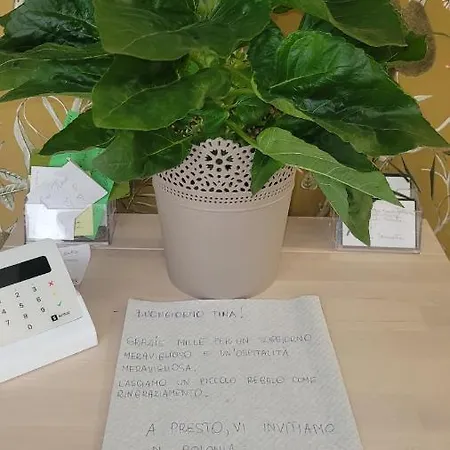 BUONGIORNO TINA!
GRAZIE MILLE PER UN SOGGIORNO
MERAVIGLIOSO E UN'OSPITALITÀ
MERAVIGLIOSA.
LASCIAMO UN PICCOLO REGALO COME
RINGRAZIAMENTO.
A PRESTO, VI INVITIAMO
IN POLONIA